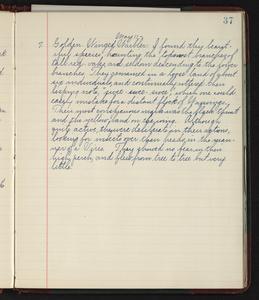 37
7. Golden Winged Warbler. I found this beauti-
ful species haunting the topmost branches of
tall red oaks and seldom descending to the lower
branches. They remained in a loose band of about
six individuals and continually uttered their
lisping note, "which one could
easily mistake for a distant flock of Waxwings.
Their most conspicuous marks was the black throat
and the yellow band on the wing. Although
quite active, they were deliberate in their actions,
looking for insects over their heads in the man-
ner of a Vireo. They showed no fear in their
high perch and flew from tree to tree but very
little.